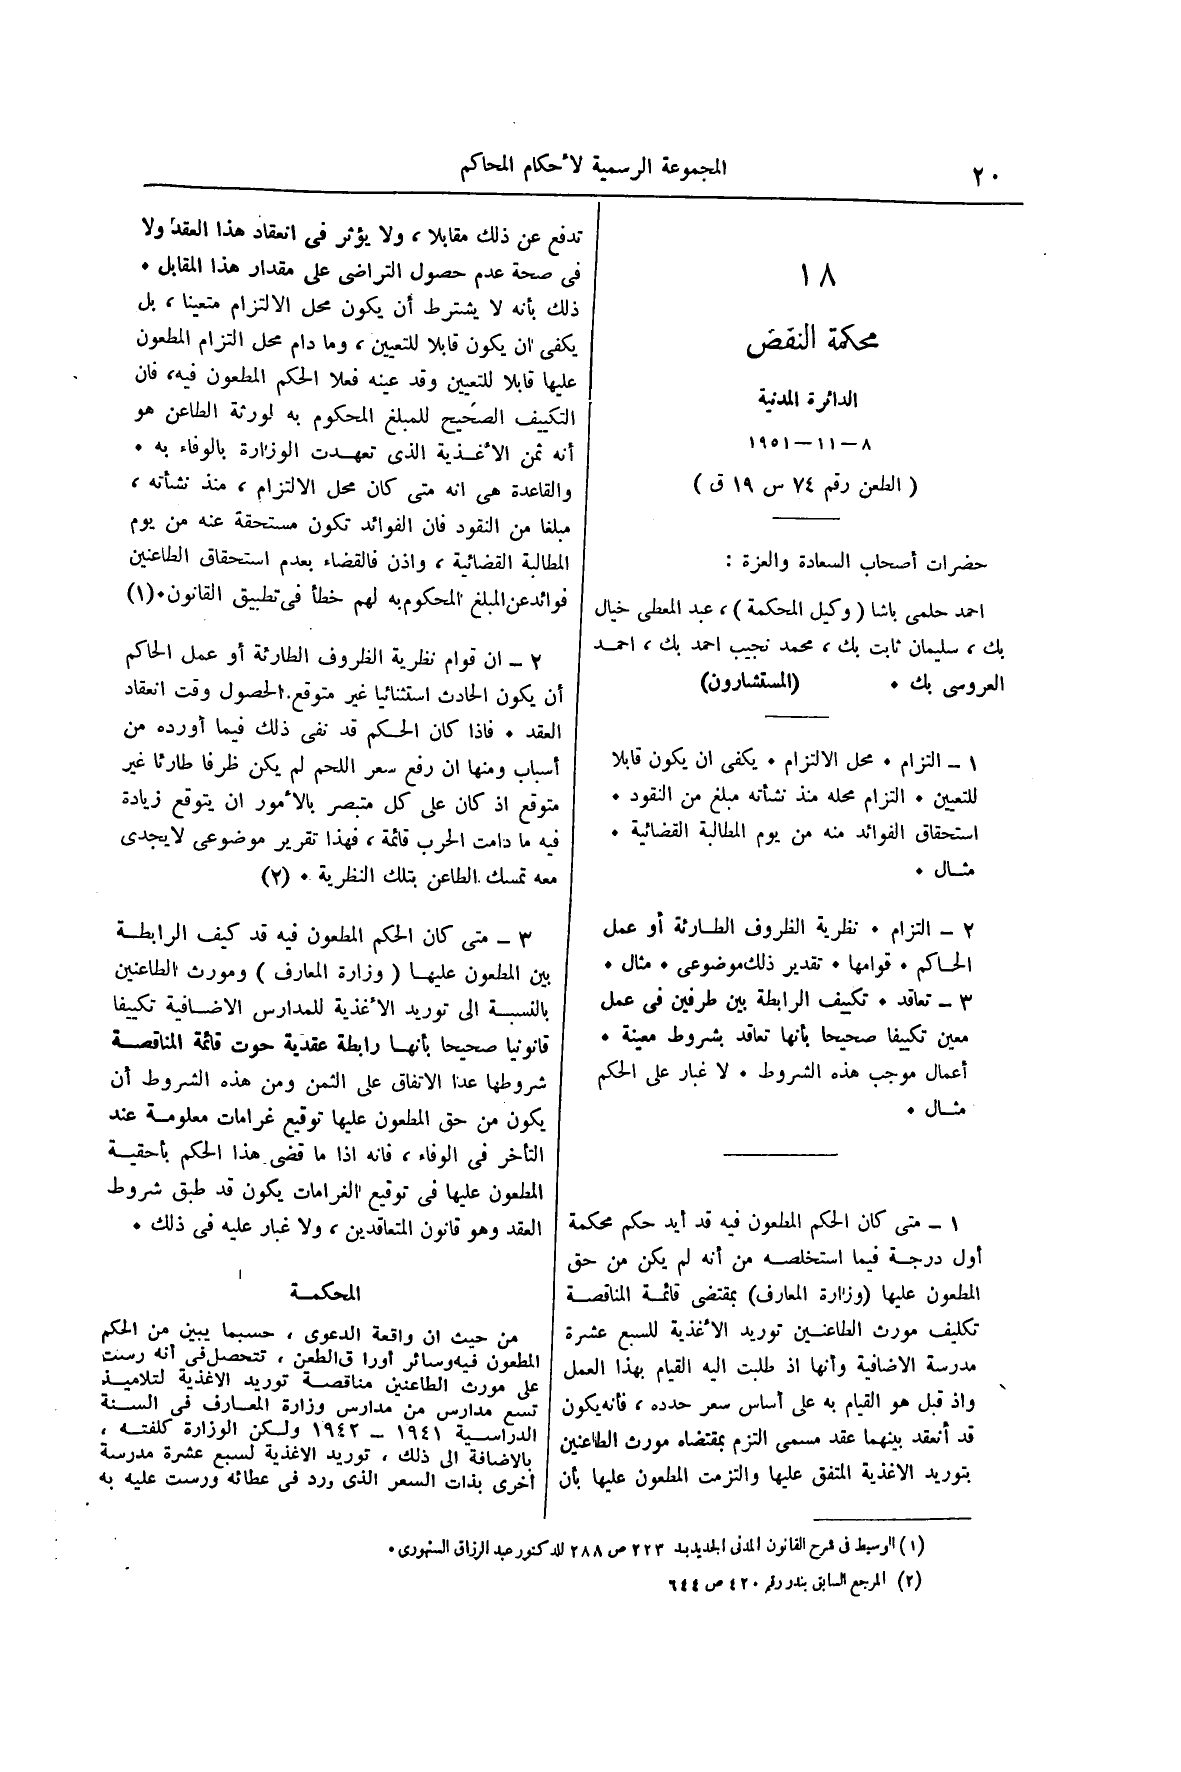 ٢٠
المجموعة الرسمية لأحكام المحاكم
١٨
محكمة النقض
الدائرة المدنية
٨ – ١١ – ١٩٥١
( الطعن رقم ٧٤ س ١٩ ق )
حضرات أصحاب السعادة والعزة :
احمد حلمى باشا ( وكيل المحكمة ) ، عبد المعطى خيال
بك ، سليمان ثابت بك ، محمد نجيب احمد بك ، احمد
العروسى بك . (المستشارون)
١ – التزام . محل الالتزام . يكفى ان يكون قابلا
للتعيين . التزام محله منذ نشأته مبلغ من النقود .
استحقاق الفوائد منه من يوم المطالبة القضائية .
مثال .
٢ – التزام . نظرية الظروف الطارئة أو عمل
الحاكم . قوامها . تقدير ذلك موضوعى . مثال .
٣ – تعاقد . تكييف الرابطة بين طرفين فى عمل
معين تكييفا صحيحا بأنها تعاقد بشروط معينة .
أعمال موجب هذه الشروط . لا غبار على الحكم
مثال .
١ – متى كان الحكم المطعون فيه قد أيد حكم محكمة
أول درجة فيما استخلصه من أنه لم يكن من حق
المطعون عليها (وزارة المعارف) بمقتضى قائمة المناقصة
تكليف مورث الطاعنين توريد الأغذية للسبع عشرة
مدرسة الاضافية وأنها اذ طلبت اليه القيام بهذا العمل
واذ قبل هو القيام به على أساس سعر حدده ، فأنه يكون
قد أنعقد بينهما عقد مسمى التزم بمقتضاه مورث الطاعنين
بتوريد الاغذية المتفق عليها والتزمت المطعون عليها بأن
تدفع عن ذلك مقابلا ، ولا يؤثر فى انعقاد هذا العقد ولا
فى صحة عدم حصول التراضى على مقدار هذا المقابل .
ذلك بأنه لا يشترط أن يكون محل الالتزام متعينا ، بل
يكفى ان يكون قابلا للتعيين ، وما دام محل التزام المطعون
عليها قابلا للتعيين وقد عينه فعلا الحكم المطعون فيه، فان
التكييف الصحيح للمبلغ المحكوم به لورثة الطاعن هو
أنه ثمن الأغذية الذى تعهدت الوزارة بالوفاء به .
والقاعدة هى انه متى كان محل الالتزام ، منذ نشأته ،
مبلغا من النقود فان الفوائد تكون مستحقة عنه من يوم
المطالبة القضائية ، واذن فالقضاء بعدم استحقاق الطاعنين
فوائد عن المبلغ المحكوم به لهم خطأ فى تطبيق القانون .(١)
٢ – ان قوام نظرية الظروف الطارئة أو عمل الحاكم
أن يكون الحادث استثنائيا غير متوقع الحصول وقت انعقاد
العقد . فاذا كان الحكم قد نفى ذلك فيما أورده من
أسباب ومنها ان رفع سعر اللحم لم يكن ظرفا طارئا غير
متوقع اذ كان على كل متبصر بالأمور ان يتوقع زيادة
فيه ما دامت الحرب قائمة ، فهذا تقرير موضوعى لا يجدى
معه تمسك الطاعن بتلك النظرية . (٢)
٣ – متى كان الحكم المطعون فيه قد كيف الرابطة
بين المطعون عليها ( وزارة المعارف ) ومورث الطاعنين
بالنسبة الى توريد الأغذية للمدارس الاضافية تكييفا
قانونيا صحيحا بأنها رابطة عقدية حوت قائمة المناقصة
شروطها عدا الاتفاق على الثمن ومن هذه الشروط أن
يكون من حق المطعون عليها توقيع غرامات معلومة عند
التأخر فى الوفاء ، فانه اذا ما قضى هذا الحكم بأحقية
المطعون عليها فى توقيع الغرامات يكون قد طبق شروط
العقد وهو قانون المتعاقدين ، ولا غبار عليه فى ذلك .
المحكمة
من حيث ان واقعة الدعوى ، حسبما يبين من الحكم
المطعون فيه وسائر أوراق الطعن ، تتحصل فى أنه رست
على مورث الطاعنين مناقصة توريد الاغذية لتلاميذ
تسع مدارس من مدارس وزارة المعارف فى السنة
الدراسية ١٩٤١ – ١٩٤٢ ولكن الوزارة كلفته ،
بالاضافة الى ذلك ، توريد الاغذية لسبع عشرة مدرسة
أخرى بذات السعر الذى ورد فى عطائه ورست عليه به
(١) الوسيط فى شرح القانون المدنى الجديد بند ٢٢٣ ص ٢٨٨ للدكتور عبد الرزاق السنهورى .
(٢) المرجع السابق بندر رقم ٤٢٠ ص ٦٤٤